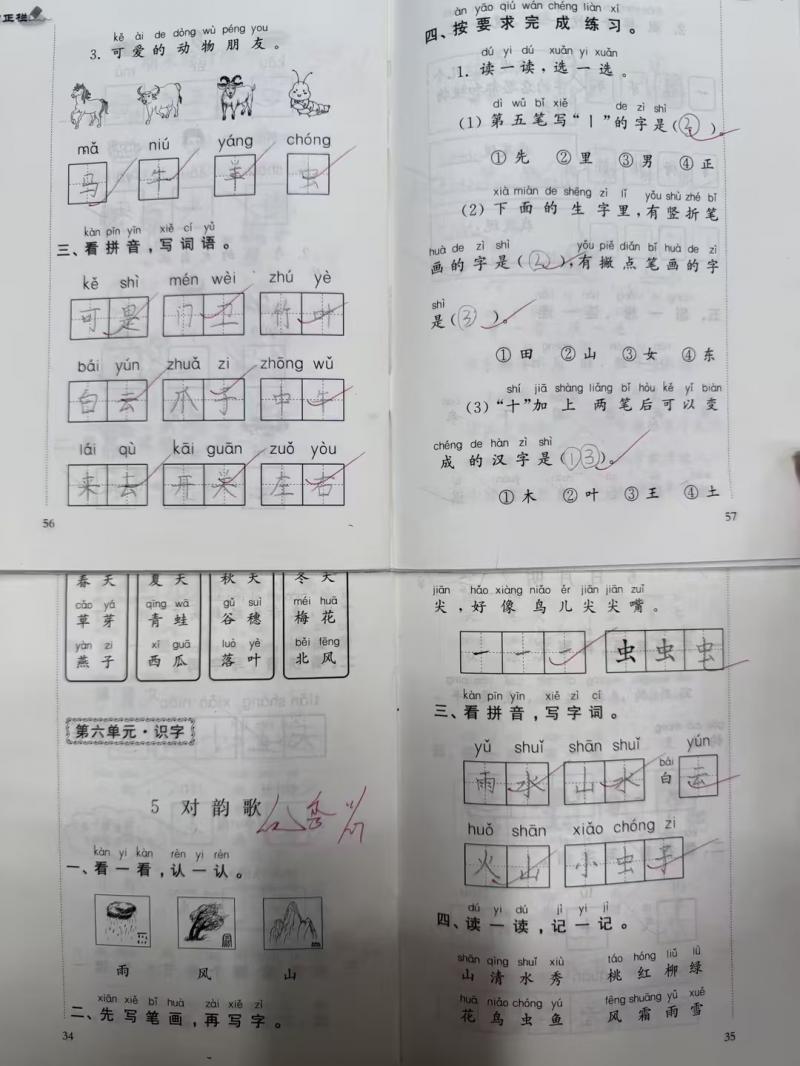 正栏
kě ài de dòng wù péng you
3. 可爱的动物朋友。
mǎ niú yáng chóng
马 牛 羊 虫
kàn pīn yīn xiě cí yǔ
三、看拼音，写词语。
kě shì mén wèi zhú yè
可是 门卫 竹叶
bái yún zhuǎ zi zhōng wǔ
白云 爪子 中午
lái qù kāi guān zuǒ yòu
来去 开关 左右
56
àn yāo qiú wán chéng liàn xí
四、按要求完成练习。
dú yi dú xuǎn yi xuǎn
1. 读一读，选一选。
dì wǔ bǐ xiě de zì shì
(1) 第五笔写“丨”的字是(④)。
① 先 ② 里 ③ 男 ④ 正
xià miàn de shēng zì lǐ yǒu shù zhé bǐ
(2) 下面的生字里，有竖折笔
huà de zì shì yǒu piě diǎn bǐ huà de zì
画的字是(②)，有撇点笔画的字
shì
是(③)。
① 田 ② 山 ③ 女 ④ 东
shí jiā shàng liǎng bǐ hòu kě yǐ biàn
(3) “十”加上两笔后可以变
chéng de hàn zì shì
成的汉字是(①③)。
① 木 ② 叶 ③ 王 ④ 土
57
春天 夏天 秋天 冬天
cǎo yá qīng wā gǔ suì méi huā
草芽 青蛙 谷穗 梅花
yàn zi xī guā luò yè běi fēng
燕子 西瓜 落叶 北风
第六单元·识字
5 对韵歌
kàn yi kàn rèn yi rèn
一、看一看，认一认。
雨 风 山
xiān xiě bǐ huà zài xiě zì
二、先写笔画，再写字。
34
jiān hǎo xiàng niǎo ér jiān jiān zuǐ
尖，好像鸟儿尖尖嘴。
虫 虫 虫
kàn pīn yīn xiě zì cí
三、看拼音，写字词。
yǔ shuǐ shān shuǐ yún
雨水 山水 bái 白 云
huǒ shān xiǎo chóng zi
火山 小虫子
dú yi dú jì yi jì
四、读一读，记一记。
shān qīng shuǐ xiù táo hóng liǔ lǜ
山清水秀 桃红柳绿
huā niǎo chóng yú fēng shuāng yǔ xuě
花鸟虫鱼 风霜雨雪
35